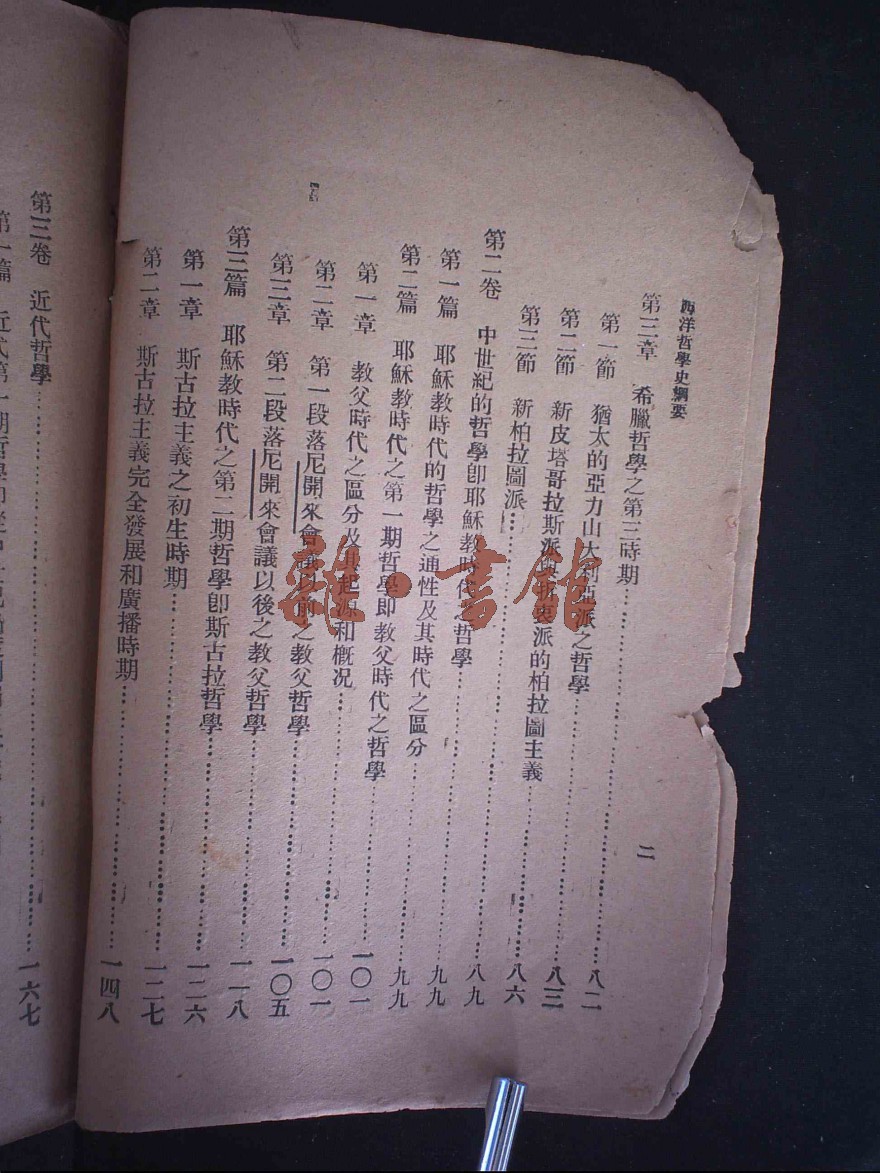 西洋哲學史綱要
二
第三章 希臘哲學之第三時期……八二
第一節 猶太的亞力山大利亞派之哲學……八三
第二節 新皮塔哥拉斯派與折衷派的柏拉圖主義……八六
第三節 新柏拉圖派……八九
第二卷 中世紀的哲學即耶穌教時代之哲學……九九
第一篇 耶穌教時代的哲學之通性及其時代之區分……九九
第二篇 耶穌教時代之第一期哲學即教父時代之哲學……一〇一
第一章 教父時代之區分及其起源和概況……一〇一
第二章 第一段落尼開來會議以前之教父哲學……一〇五
第三章 第二段落尼開來會議以後之教父哲學……一一八
第三篇 耶穌教時代之第二期哲學即斯古拉哲學……一二六
第一章 斯古拉主義之初生時期……一二七
第二章 斯古拉主義完全發展和廣播時期……一四八
第三卷 近代哲學……一六七
雜·書館